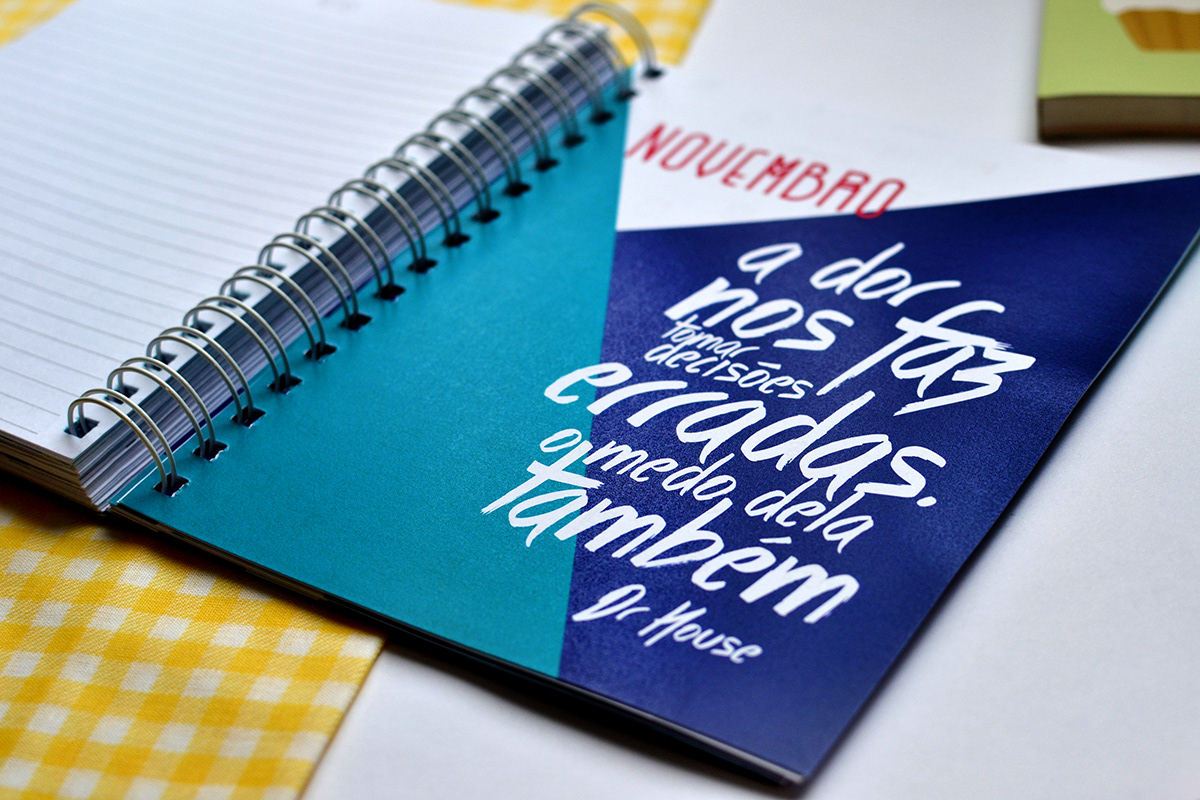 NOVEMBRO
a dor
nos faz
tomar
decisões
erradas.
o medo dela
também
Dr House